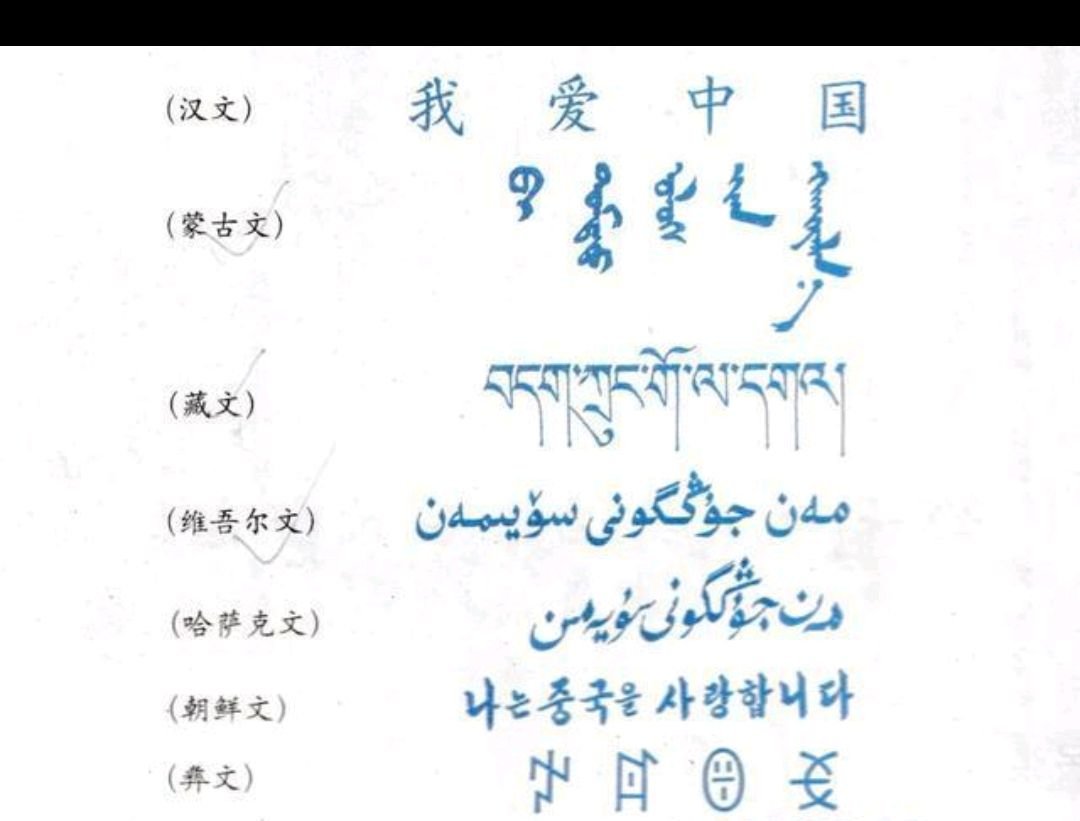 (汉文) 我 爱 中 国
(蒙古文)
(藏文) བདག་ཀྲུང་གོ་ལ་དགའ།
(维吾尔文) مەن جۇڭگونى سۆيىمەن
(哈萨克文) مەن جۇڭگونى سۇيەمىن
(朝鲜文) 나는 중국을 사랑합니다
(彝文)